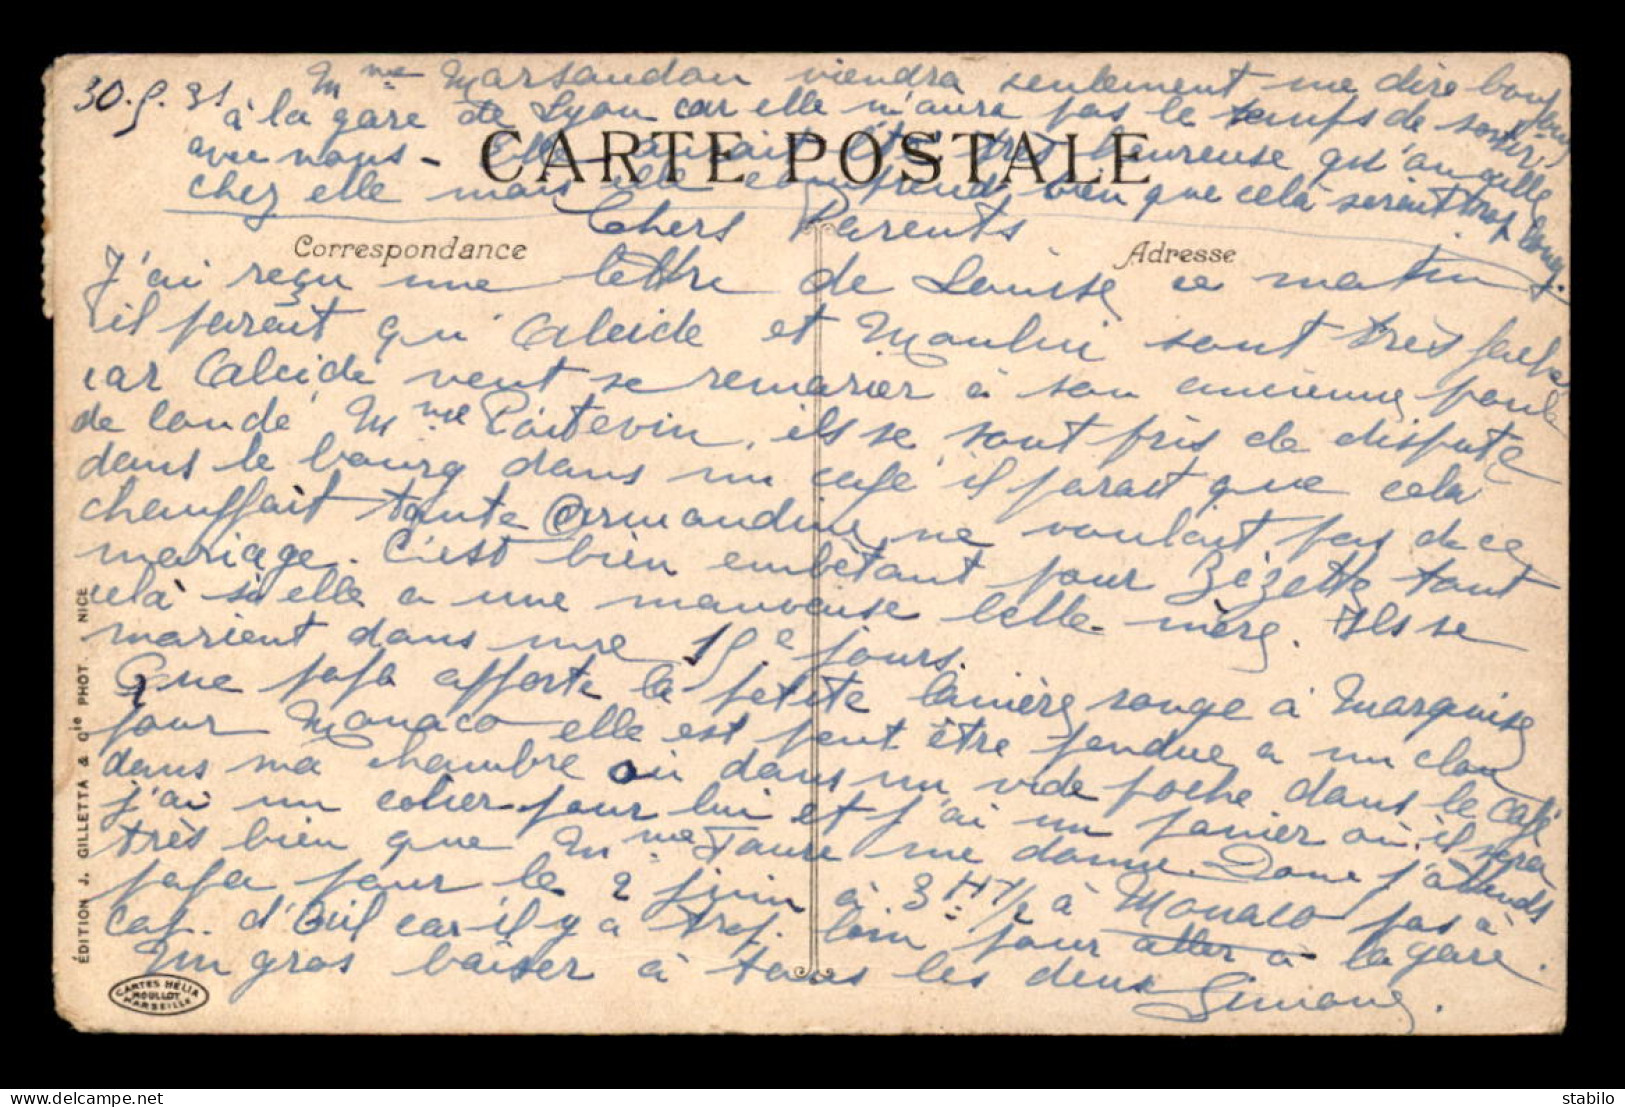 30.5.31
Mme Marsaudon viendra seulement me dire bonjour
à la gare de Lyon car elle n'aura pas le temps de sortir
avec nous - Elle aurait été très heureuse qu'on aille
chez elle mais elle comprend bien que celà serait trop long.
CARTE POSTALE
Chers Parents
Correspondance
Adresse
J'ai reçu une lettre de Louise ce matin
il parait qu'Alcide et Moulin sont très faches
car Alcide veut se remarier à son ancienne poule
de Mme Poitevin, ils se sont pris de dispute
dans le bourg dans un café il parait que celà
chauffait tante Armandine ne voulait pas de ce
mariage. C'est bien embêtant pour Zézette tant
celà si elle a une mauvaise belle-mère. Ils se
marient dans une 15e jours.
Que papa apporte la petite lanière rouge à Marquise
pour Monaco elle est peut être pendue a un clou
dans ma chambre où dans un vide poche dans le café
j'ai un colier pour lui et j'ai un panier où il sera
très bien que Mme Faure me donne. Donc j'attends
papa pour le 2 juin à 3 H 1/2 à Monaco pas à
Cap. d'Ail car il y a trop loin pour aller à la gare.
Un gros baiser à tous les deux Simone.
ÉDITION J. GILLETTA & Cie PHOT. NICE
CARTES HÉLIA
MOULLOT
MARSEILLE
delcampe.net
stabilo